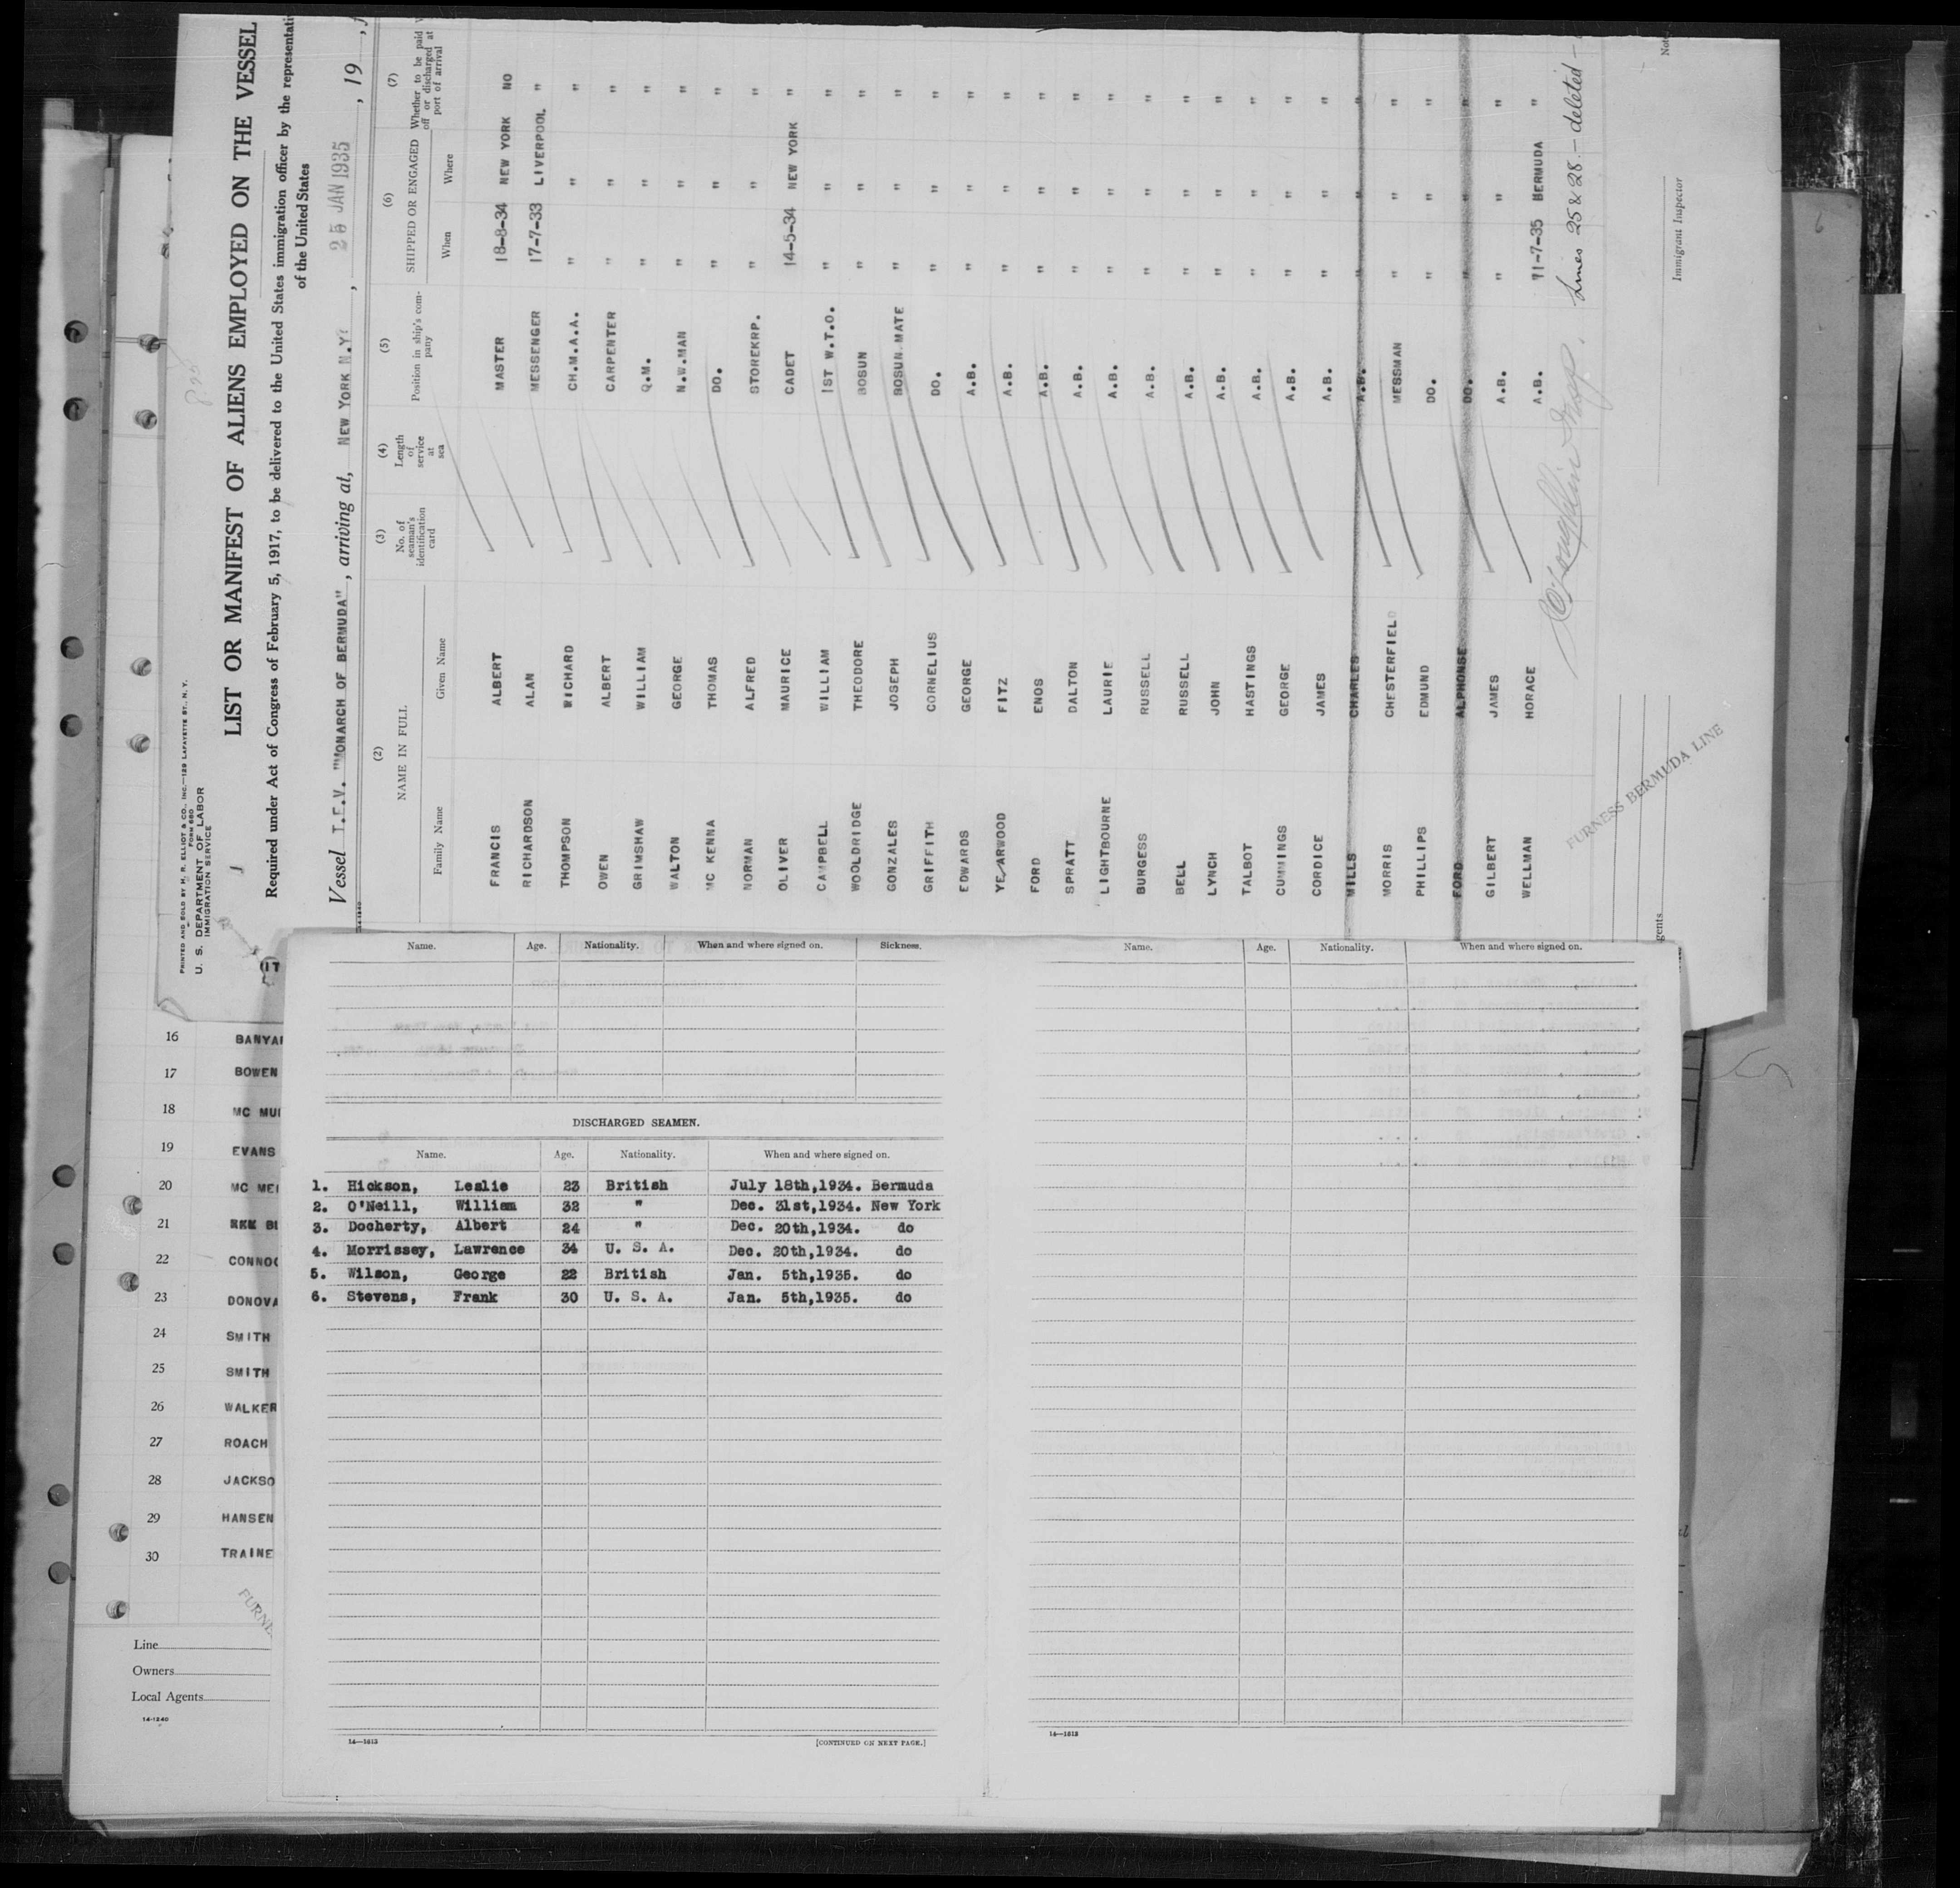 PRINTED AND SOLD BY H. R. ELLIOT & CO., INC.—129 LAFAYETTE ST., N. Y.
FORM 680
U. S. DEPARTMENT OF LABOR
IMMIGRATION SERVICE
LIST OR MANIFEST OF ALIENS EMPLOYED ON THE VESSEL
Required under Act of Congress of February 5, 1917, to be delivered to the United States immigration officer by the representati
of the United States
Vessel T.E.V. "MONARCH OF BERMUDA", arriving at, NEW YORK N.Y., 25 JAN 1935, 19
(2) (3) (4) (5) (6) (7)
NAME IN FULL No. of seaman's identification card Length of service at sea Position in ship's company SHIPPED OR ENGAGED Whether to be paid off or discharged at port of arrival
Family Name Given Name When Where
FRANCIS ALBERT MASTER 18-8-34 NEW YORK NO
RICHARDSON ALAN MESSENGER 17-7-33 LIVERPOOL "
THOMPSON RICHARD CH.M.A.A. " " "
OWEN ALBERT CARPENTER " " "
GRIMSHAW WILLIAM Q.M. " " "
WALTON GEORGE N.W.MAN " " "
MC KENNA THOMAS DO. " " "
NORMAN ALFRED STOREKRP. " " "
OLIVER MAURICE CADET 14-5-34 NEW YORK "
CAMPBELL WILLIAM 1ST W.T.O. " " "
WOOLDRIDGE THEODORE BOSUN " " "
GONZALES JOSEPH BOSUN MATE " " "
GRIFFITH CORNELIUS DO. " " "
EDWARDS GEORGE A.B. " " "
YEARWOOD FITZ A.B. " " "
FORD ENOS A.B. " " "
SPRATT DALTON A.B. " " "
LIGHTBOURNE LAURIE A.B. " " "
BURGESS RUSSELL A.B. " " "
BELL RUSSELL A.B. " " "
LYNCH JOHN A.B. " " "
TALBOT HASTINGS A.B. " " "
CUMMINGS GEORGE A.B. " " "
CORDICE JAMES A.B. " " "
MILLS CHARLES A.B. " " "
MORRIS CHESTERFIELD MESSMAN " " "
PHILLIPS EDMUND DO. " " "
FORD ALPHONSE DO. " " "
GILBERT JAMES A.B. " " "
WELLMAN HORACE A.B. 11-7-35 BERMUDA "
Lines 25 & 28 - deleted -
Immigrant Inspector
FURNESS BERMUDA LINE
gents
Name. Age. Nationality. When and where signed on. Sickness.
DISCHARGED SEAMEN.
Name. Age. Nationality. When and where signed on.
1. Hickson, Leslie 23 British July 18th,1934. Bermuda
2. O'Neill, William 32 " Dec. 31st,1934. New York
3. Docherty, Albert 24 " Dec. 20th,1934. do
4. Morrissey, Lawrence 34 U. S. A. Dec. 20th,1934. do
5. Wilson, George 22 British Jan. 5th,1935. do
6. Stevens, Frank 30 U. S. A. Jan. 5th,1935. do
14—1613 [CONTINUED ON NEXT PAGE.]
Name. Age. Nationality. When and where signed on.
14—1613
16 BANYA
17 BOWEN
18 MC MU
19 EVANS
20 MC ME
21
22 CONNO
23 DONOVA
24 SMITH
25 SMITH
26 WALKER
27 ROACH
28 JACKSO
29 HANSEN
30 TRAINE
FURNE
Line
Owners
Local Agents
14-1240